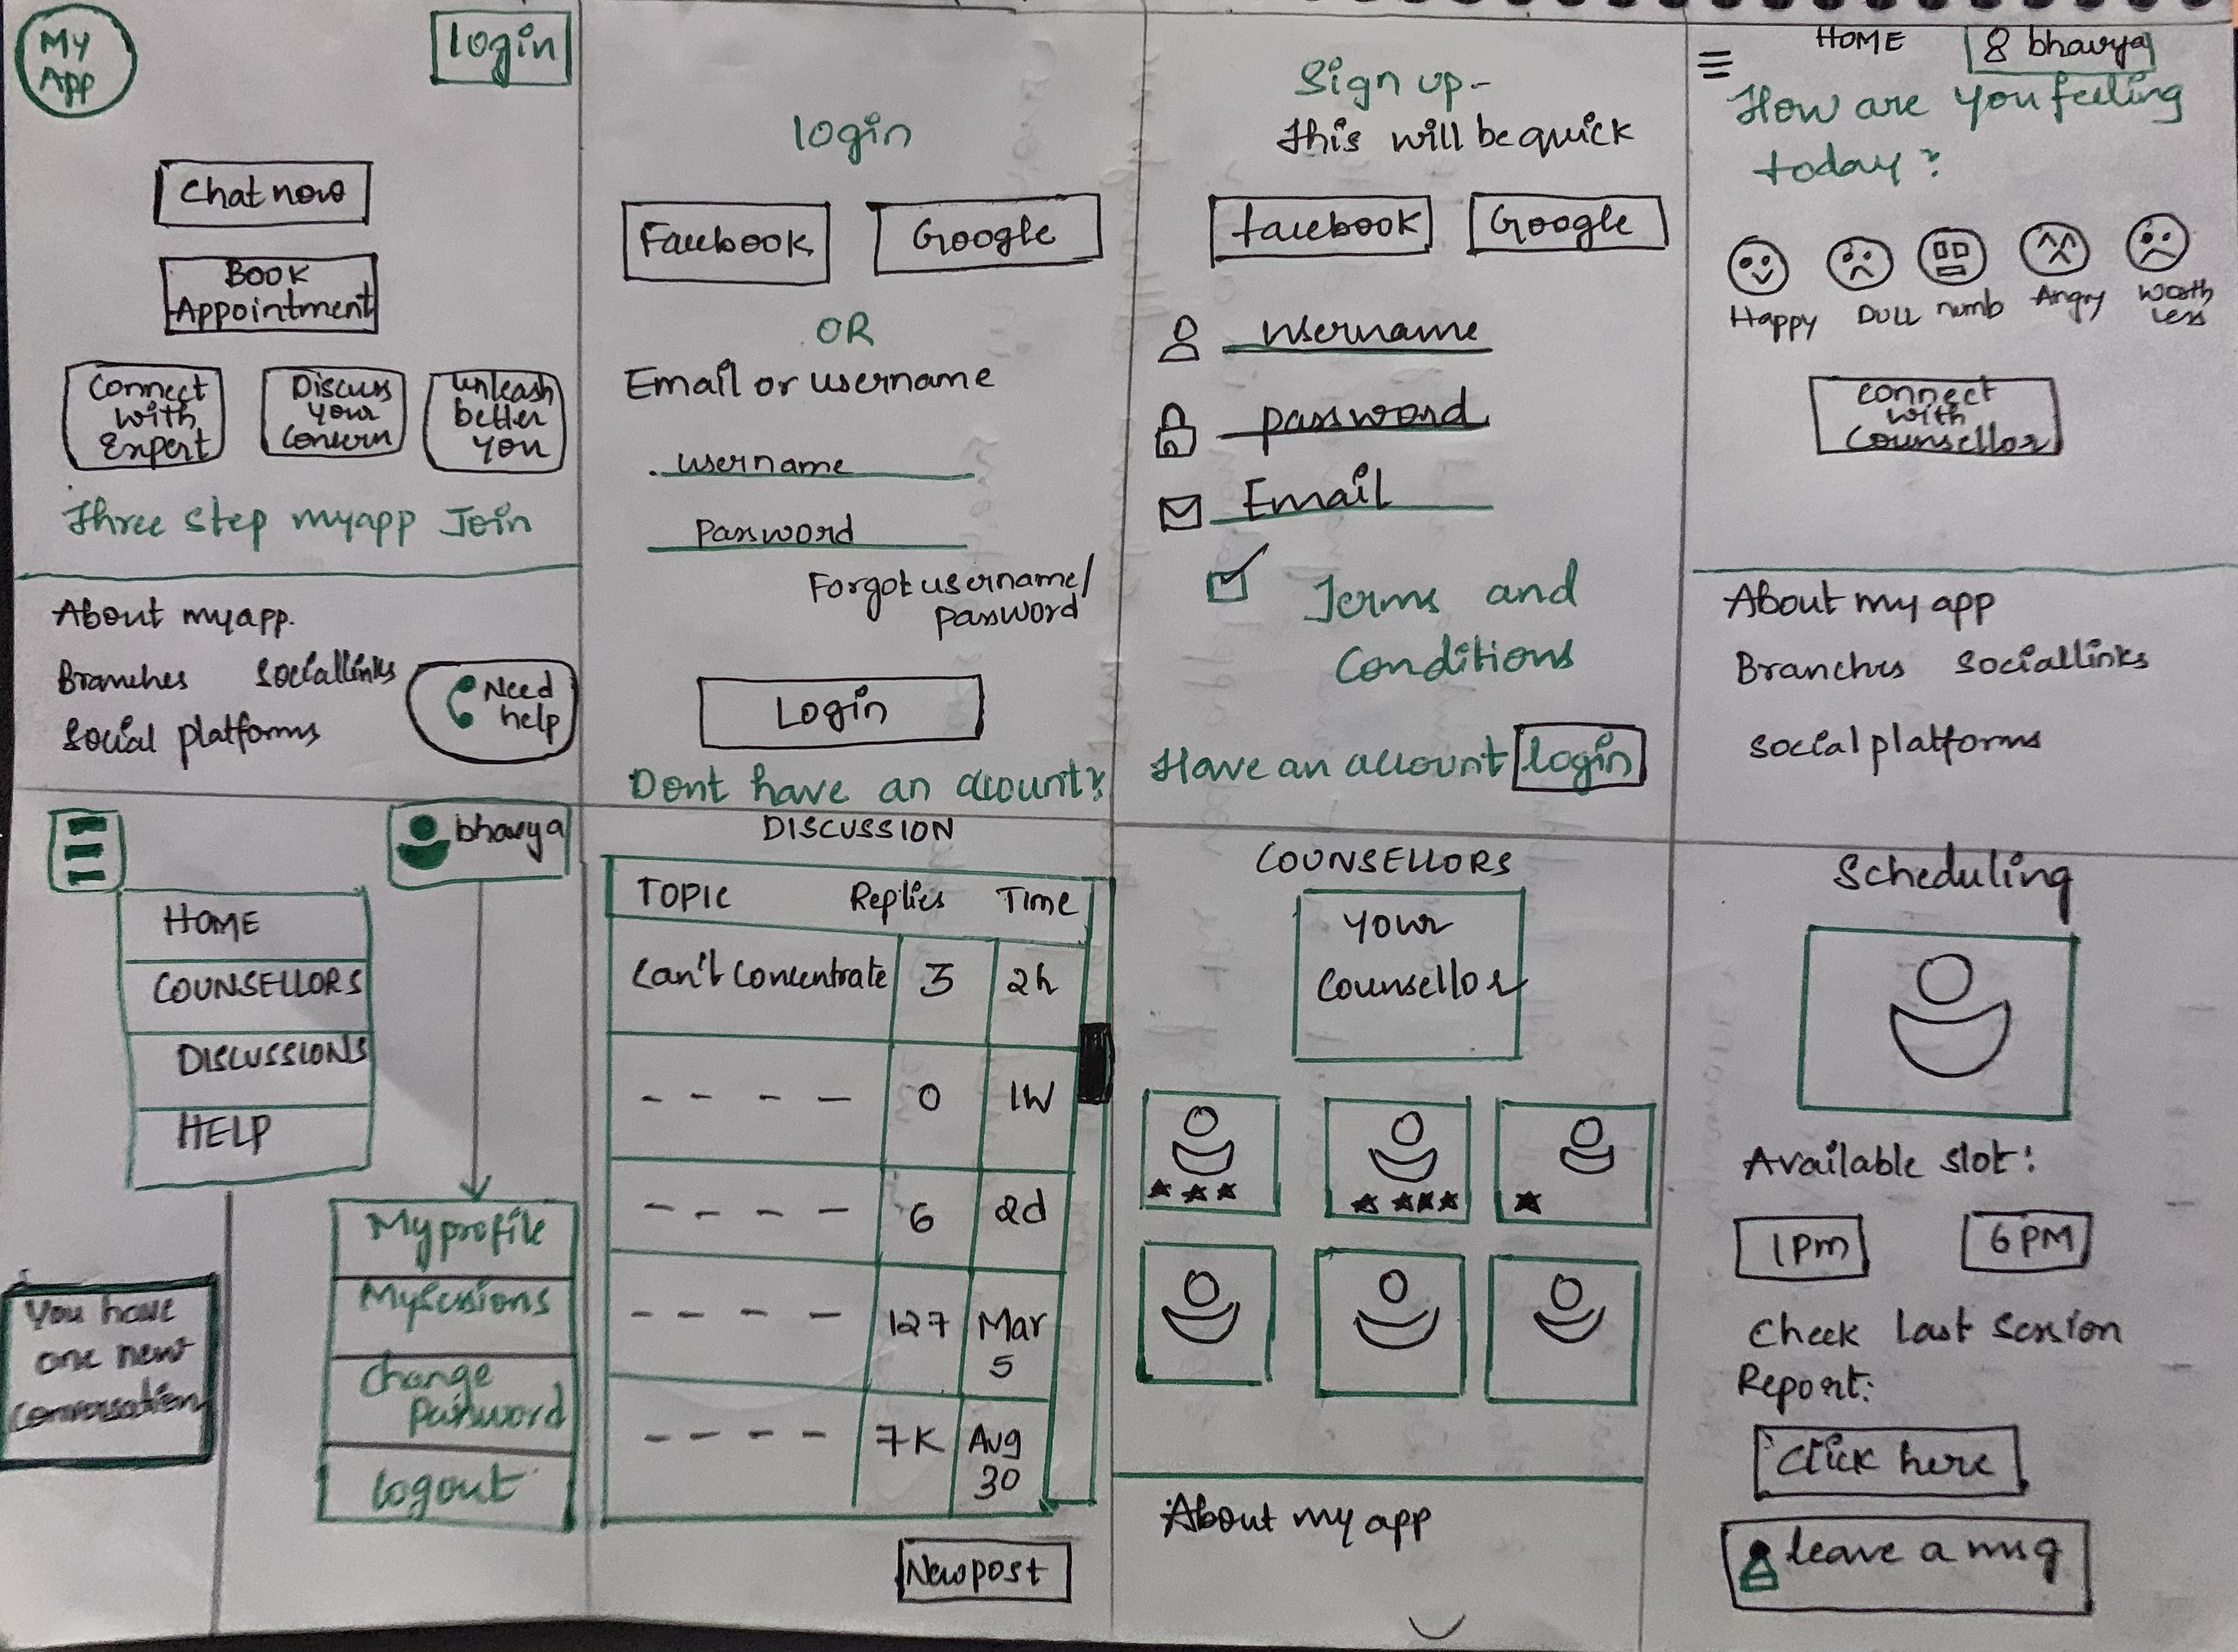 My
App
login
Chat now
Book
Appointment
Connect
with
Expert
Discuss
your
Concern
unleash
better
you
Three step myapp Join
About myapp.
Branches Sociallinks
Social platforms
Need
help
login
Facebook
Google
OR
Email or username
username
password
Forgot username/
password
Login
Dont have an acount?
Sign up-
This will be quick
facebook
Google
username
password
Email
Terms and
Conditions
Have an account login
HOME
bhavya
How are you feeling
today?
Happy
DULL
numb
Angry
worth
less
connect
with
Counsellor
About my app
Branches Sociallinks
social platforms
bhavya
HOME
COUNSELLORS
DISCUSSIONS
HELP
My profile
My Sessions
Change
Password
logout
You have
one new
conversation
DISCUSSION
TOPIC Replies Time
Can't Concentrate 3 2h
0 1W
6 2d
127 Mar
5
7K Aug
30
New post
COUNSELLORS
Your
Counsellor
About my app
Scheduling
Available slot:
1pm
6PM
Check Last Session
Report:
Click here
leave a msg